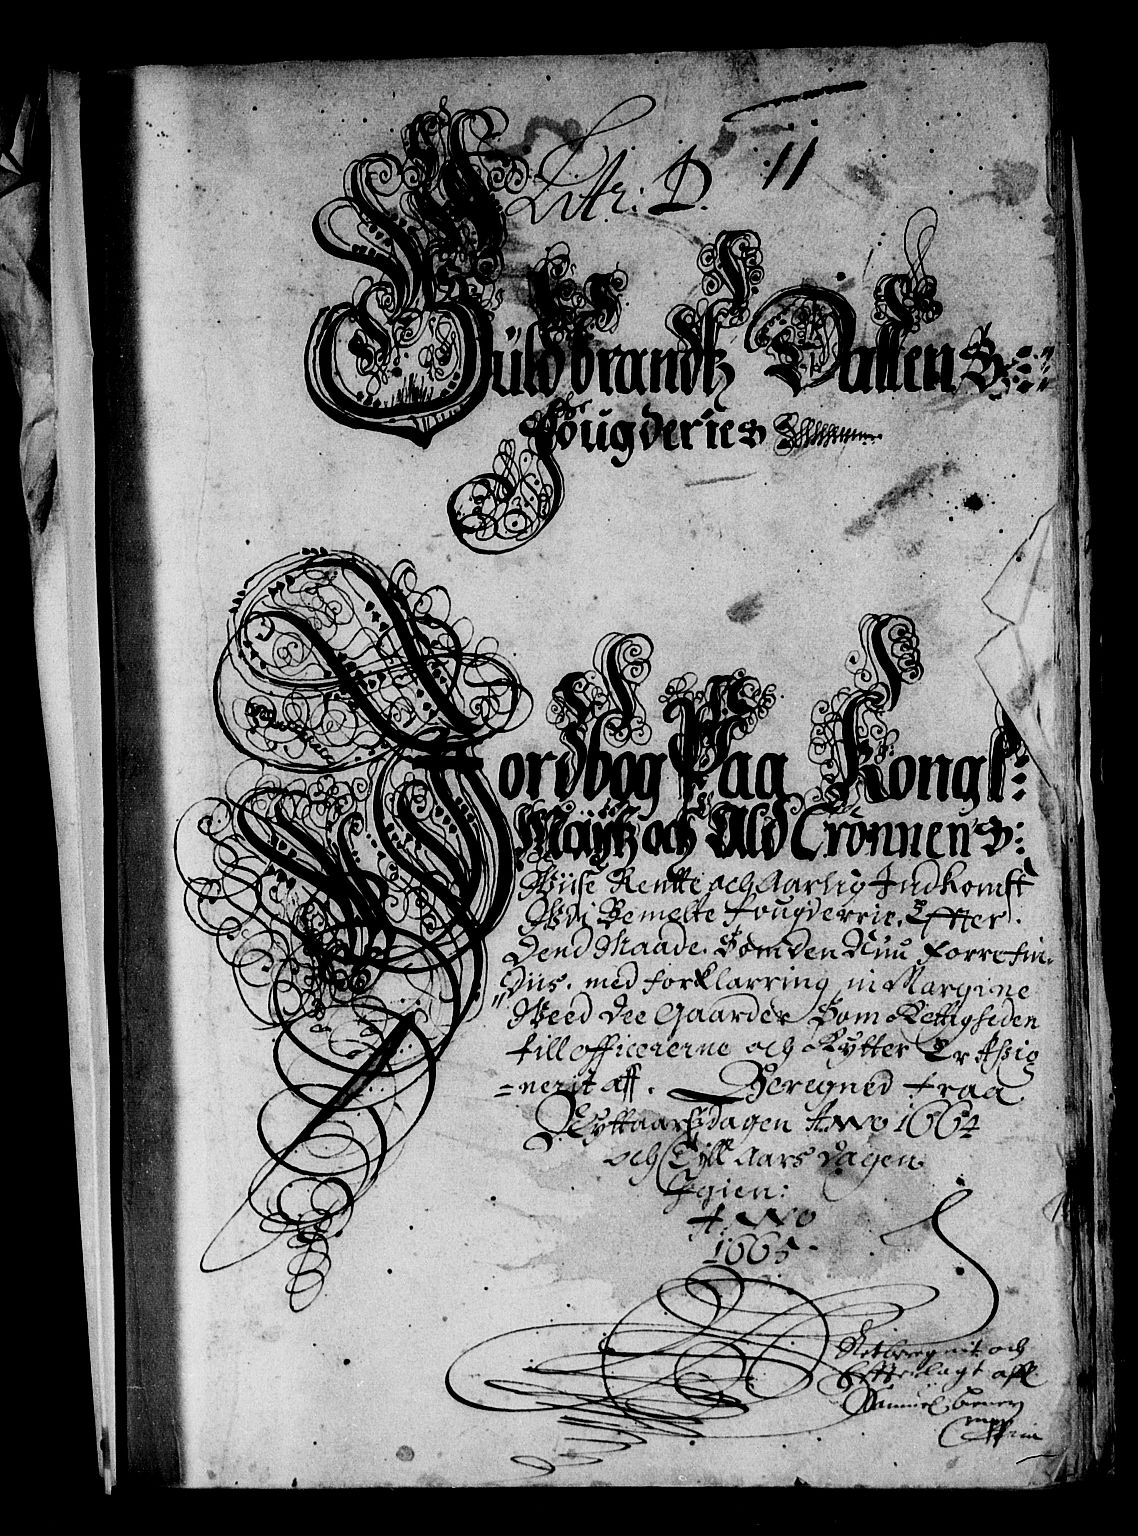 Litr: D. 11
Guldbrandtz Dallens
Fougderies
Jordbog Paa Kongl:
Maÿtz och Ald Cronnens:
Wiise Rentte och Aarlig Indkomst
Udi Bemelte fougderrie, Effter
Dend Maade. Som den Nuu Forrefin-
diis. med forklarring in Margine
Weed dee Gaarder Som Rettigheden
till officererne och Rÿtter Er Aßig
=nerit aff. Beregned fraa
Nÿttaarßdagen Anno 1664
och Till Aars dagen
Igien:
Anno
1665
Retberegnit och
Effterlagt aff
Samuel